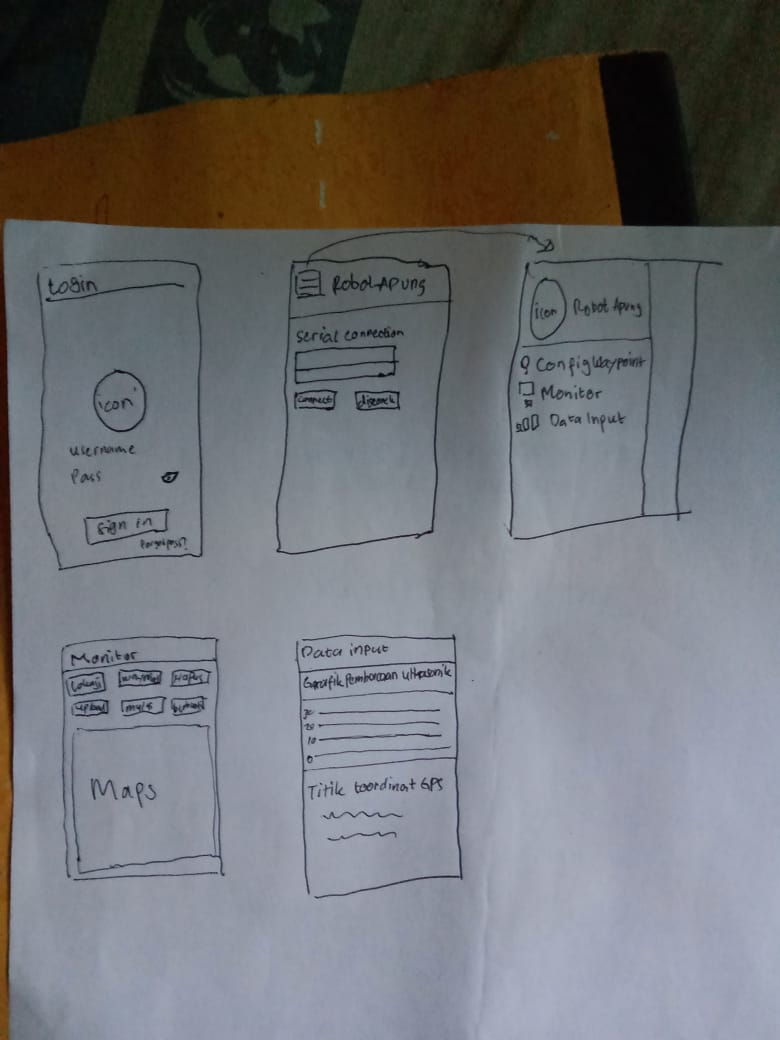 Login
icon
username
Pass
sign in
Forgot pass?
Robot Apung
serial connection
connect disconek
icon Robot Apung
Config Waypoint
Monitor
Data Input
Monitor
Lokasi waypoint Hapus
upload mulai
Maps
Data input
Grafik Pembacaan ultrasonik
30
20
10
0
Titik koordinat GPS